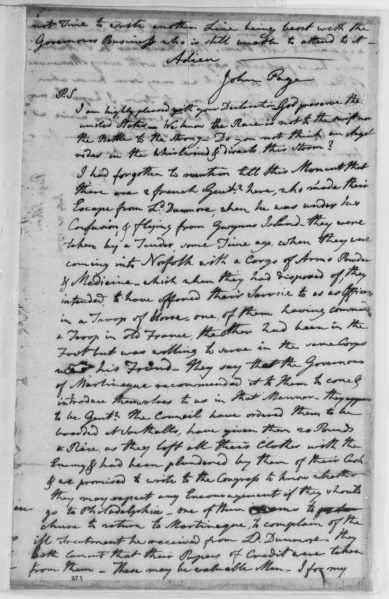 not Time to write another Line being beset with the
Governors Business who is still unable to attend to it—
Adieu
John Page
P.S.
I am highly pleased with your Declaration. God preserve the
united States— We know the Race is not to the swift nor
the Battle to the Strong— Do you not think an Angel
rides in the whirlwind & directs this Storm?
I had forgotten to mention till this Moment that
there are 2 french Gentn. here, who made their
Escape from Ld. Dunmore, when he was under his
Confusion & flying from Gwynns Island— they were
taken by a Tender, some Time ago, when they were
coming into Norfolk with a Cargo of Arms Powder
& Medicine— which when they had disposed of they
intended to have offered their Service to us as Officers
in a Troop of Horse— one of them having commanded
a Troop in old France, the other had been in the
Foot but was willing to serve in the same Corps
with his Friend— They say that the Governor
of Martinique recommended it to them to come &
introduce themselves to us in that Manner. they appear
to be Gentn. the Council have ordered them to be
boarded at have given them 20 Pounds
a Piece, as they left all their Clothes with the
Enemy & had been plundered by them of their Cash
& we promised to write to the Congress to know whether
they may expect any Encouragement if they should
go to Philadelphia— one of them seems to
chuse to return to Martinique, to complain of the
ill Treatment he received from Ld. Dunmore. they
both lament that their Papers of Credit were taken
from them— These may be valuable Men— I for my